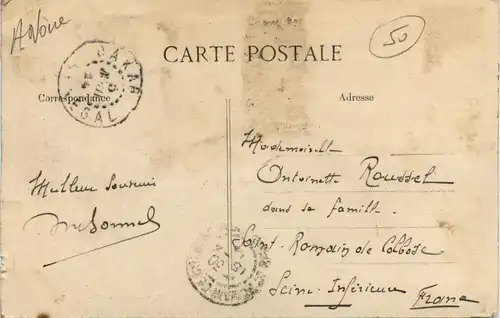 A Voir
50
CARTE POSTALE
DAKAR
SENEGAL
Correspondance
Adresse
Mademoiselle
Antoinette Roussel
dans sa famille
Saint-Romain de Colbosc
Seine-Inférieure
France
Meilleur Souvenir